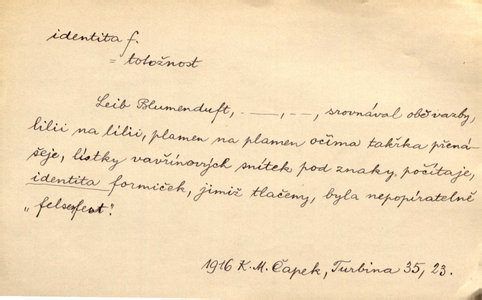 identita f.
= totožnost
Leib Blumenduft, . ——, - -, srovnával obě vazby,
lilii na lilii, plamen na plamen očima takřka přená-
šeje, lístky vavřínových snítek pod znaky počítaje,
identita formiček, jimiž tlačeny, byla nepopíratelně
„felsenfest".
1916 K. M. Čapek, Turbina 35, 23.